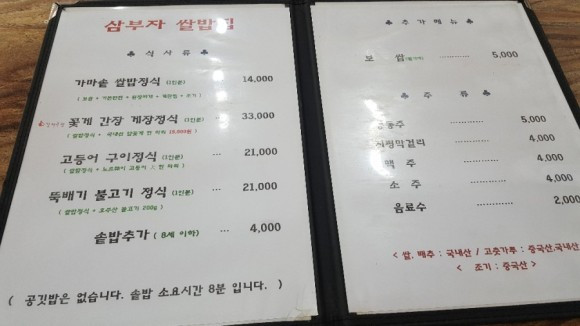 삼부자 쌀밥집
♣ 식 사 류 ♣
가마솥 쌀밥정식 (1인분) ··· 14,000
꽃게 간장 게장정식 (1인분) ··· 33,000
고등어 구이정식 (1인분) ··· 21,000
뚝배기 불고기 정식 (1인분) ··· 21,000
( 쌀밥정식 + 호주산 불고기 200g )
솥밥추가 ( 8세 이하) ··· 4,000
( 공깃밥은 없습니다. 솥밥 소요시간 8분 입니다. )
♣ 추 가 메 뉴 ♣
보 쌈 5,000
♣ 주 류 ♣
동동주 5,000
막걸리 4,000
맥 주 4,000
소 주 4,000
음료수 2,000
< 쌀, 배추 : 국내산 / 고춧가루 : 중국산,국내산
< 조기 : 중국산 >